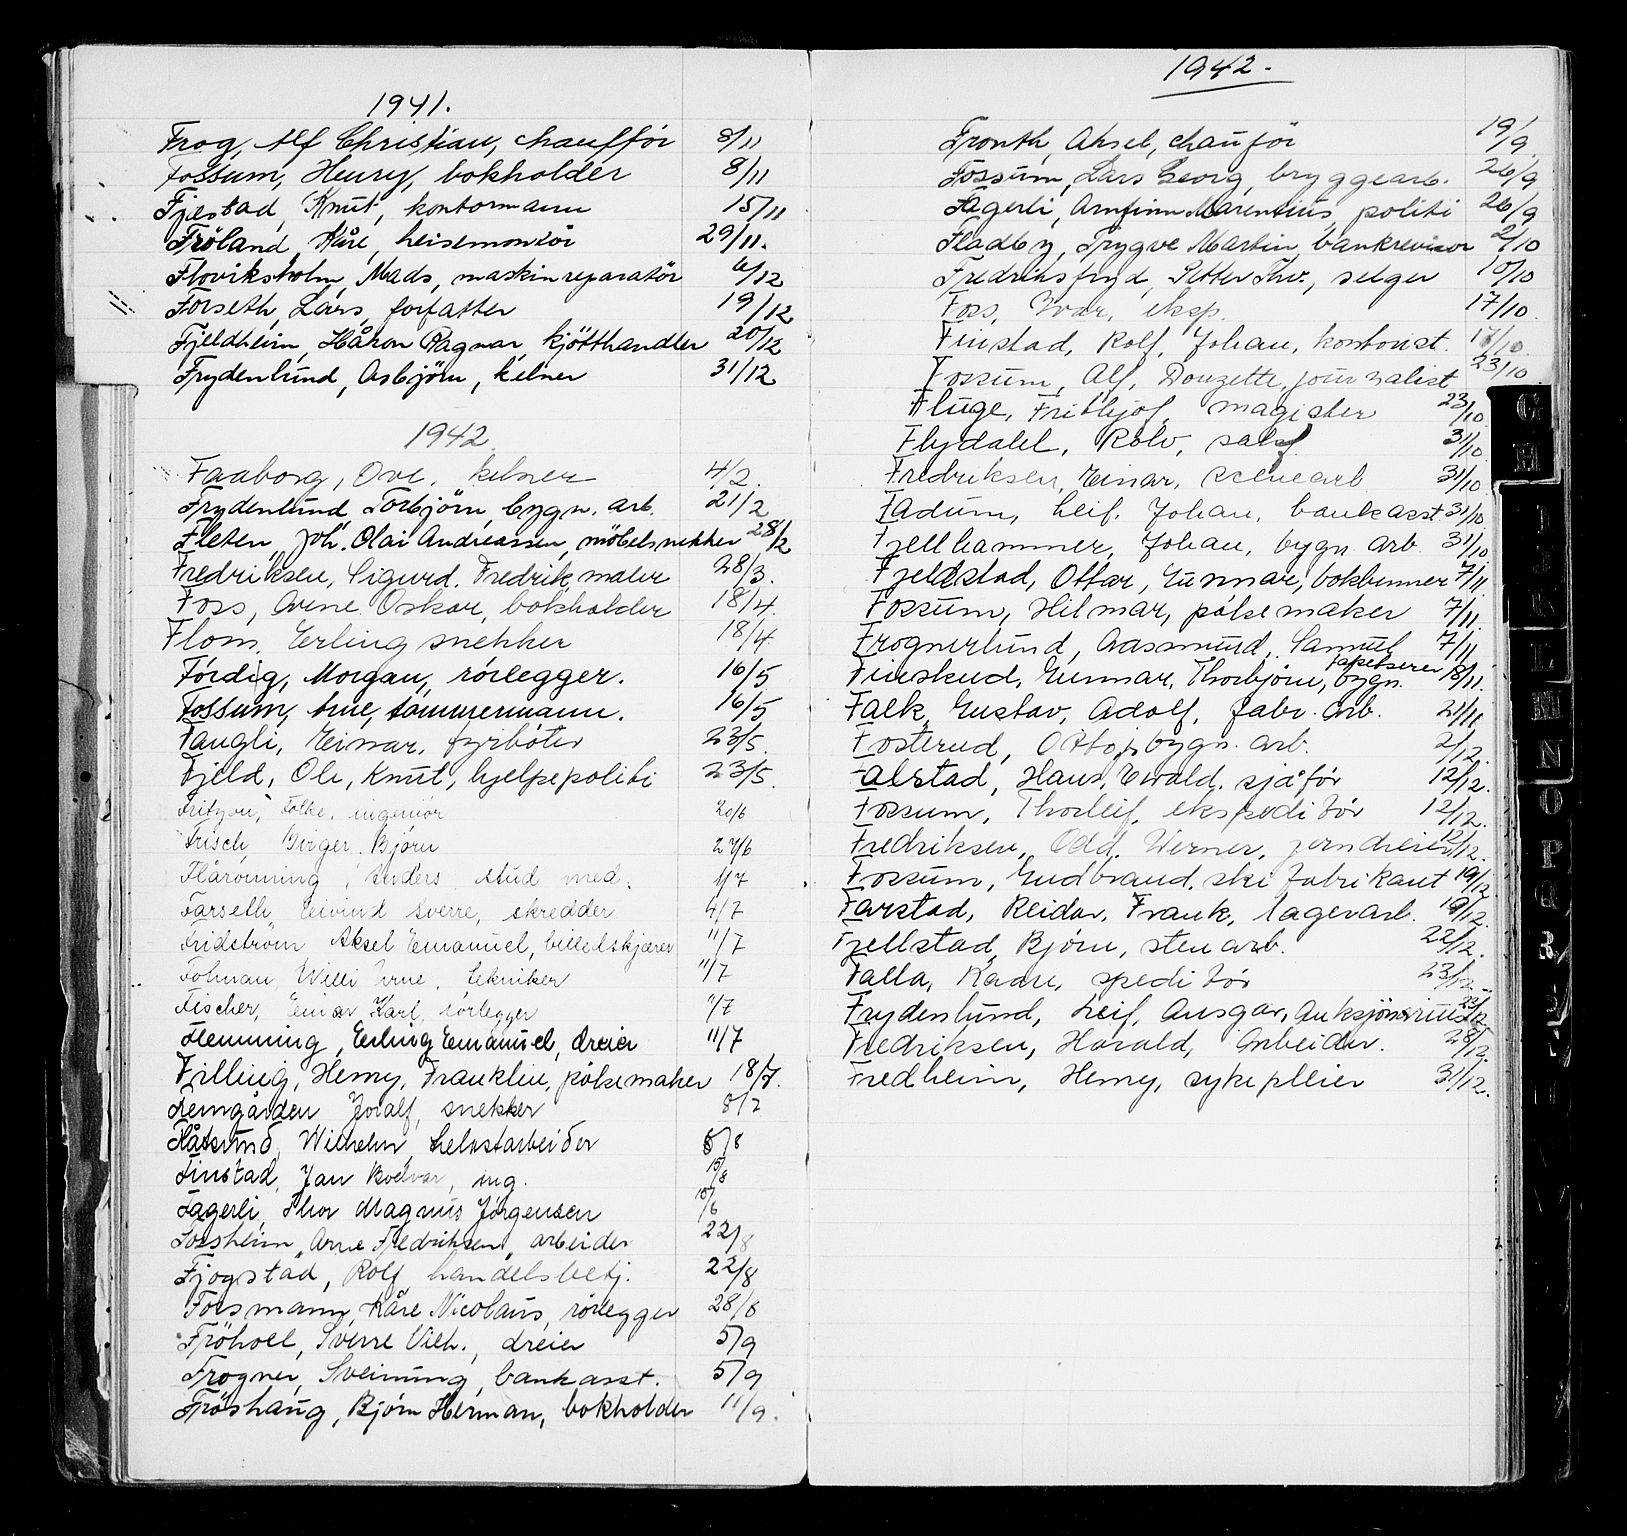 1941.
Frog, Alf Christian, chaufför 8/11
Fossum, Henry, bokholder 8/11
Fjestad, Knut, kontormann 15/11
Fröland, Kåre, heisemontör 29/11.
Floviksholm, Mads, maskinreparatör 6/12
Forseth, Lars, forfatter 19/12
Fjeldheim, Håkon Ragnar, kjötthandler 20/12
Frydenlund, Asbjörn, kelner 31/12
1942
Faaborg, Ove, kelner 4/2.
Frydenlund Torbjörn, bygn. arb. 21/2
Fleten, Joh. Olai Andreassen, möbelsnekker 28/2
Fredriksen, Sigurd. Fredrik, maler 28/3.
Foss, Arne Oskar, bokholder 18/4.
Flom, Erling snekker 18/4
Fördig, Morgan, rörlegger. 16/5
Fossum, Arne, tömmermann. 16/5
Faugli, Einar, fyrböter 23/5.
Fjeld, Ole, Knut, hjelpepoliti 23/5.
Fritzon, Folke, ingeniör 20/6
Frisch, Birger Björn 27/6
Flårönning, Anders stud med. 4/7
Farseth, Eivind Sverre, skredder 4/7
Fridström Aksel Emanuel, billedskjærer 11/7
Folman, Willi Arne, tekniker 11/7
Fischer, Einar Karl, rörlegger 11/7
Flemming, Erling Emanuel, dreier 11/7
Filling, Henry, Franklin, pölsemaker 18/7.
Femgården Joralf, snekker 8/7
Flåtsund, Wilhelm, helostarbeider 8/8
Finstad, Jan Bodvar, ing. 15/8
Fagerli, Thor Magnus Jörgensen 15/6
Forsheim, Arne Fredriksen, arbeider 22/8
Fjogstad, Rolf, handelsbetj. 22/8
Forsmann, Kåre Nicolaus, rörlegger 28/8
Fröholl, Sverre Vilh., dreier 5/9
Frogner, Sveinung, bankasst. 5/9
Fröshaug, Björn Herman, bokholder 11/9.
1942.
Fronth, Aksel, chauför 19/9
Fossum, Lars Georg, bryggearb. 26/9
Fagerli, Arnfinn Marentius, politi 26/9
Fladby, Trygve Martin, bankrevisor 2/10
Fredriksfryd, Petter Thv., selger 10/10
Foss, Ivar, eksp. 17/10.
Finstad, Rolf, Johan, kontorist. 17/10.
Fossum, Alf, Douzette, journalist 23/10
Fluge, Frithjof, magister 23/10.
Flydalel, Rolv, 31/10
Fredriksen, Einar, scenearb 31/10.
Fadum, Leif, Johan, bankasst 31/10.
Fjellhammer, Johan, bygn. arb 31/10
Fjeldstad, Ottar, Gunnar, bokbinner 7/11.
Fossum, Hilmar, pölsemaker 7/11.
Frognerlund, Aasmund, Samuel 7/11
Finskud, Gunnar, Thorbjörn, bygn. tapetserer 18/11.
Falk, Gustav, Adolf, fabr. arb. 21/11
Fosterud, Otto, bygn. arb. 2/12.
Falstad, Hans, Ewald, sjåför 12/12.
Fossum, Thorleif, ekspeditör 12/12.
Fredriksen, Odd, Werner, jerndreier 12/12.
Fossum, Gudbrand, skifabrikant 19/12
Farstad, Reidar, Frank, lagerarb. 19/12.
Fjellstad, Björn, stenarb. 22/12.
Falla, Kaare, speditör 23/12.
Frydenlund, Leif, Ansgar, Auksjonarius 23/12
Fredriksen, Harald, Arbeider. 28/12.
Fredheim, Henry, sykepleier 31/12.
G
H
I
J
K
L
M
N
O
P
Q
R